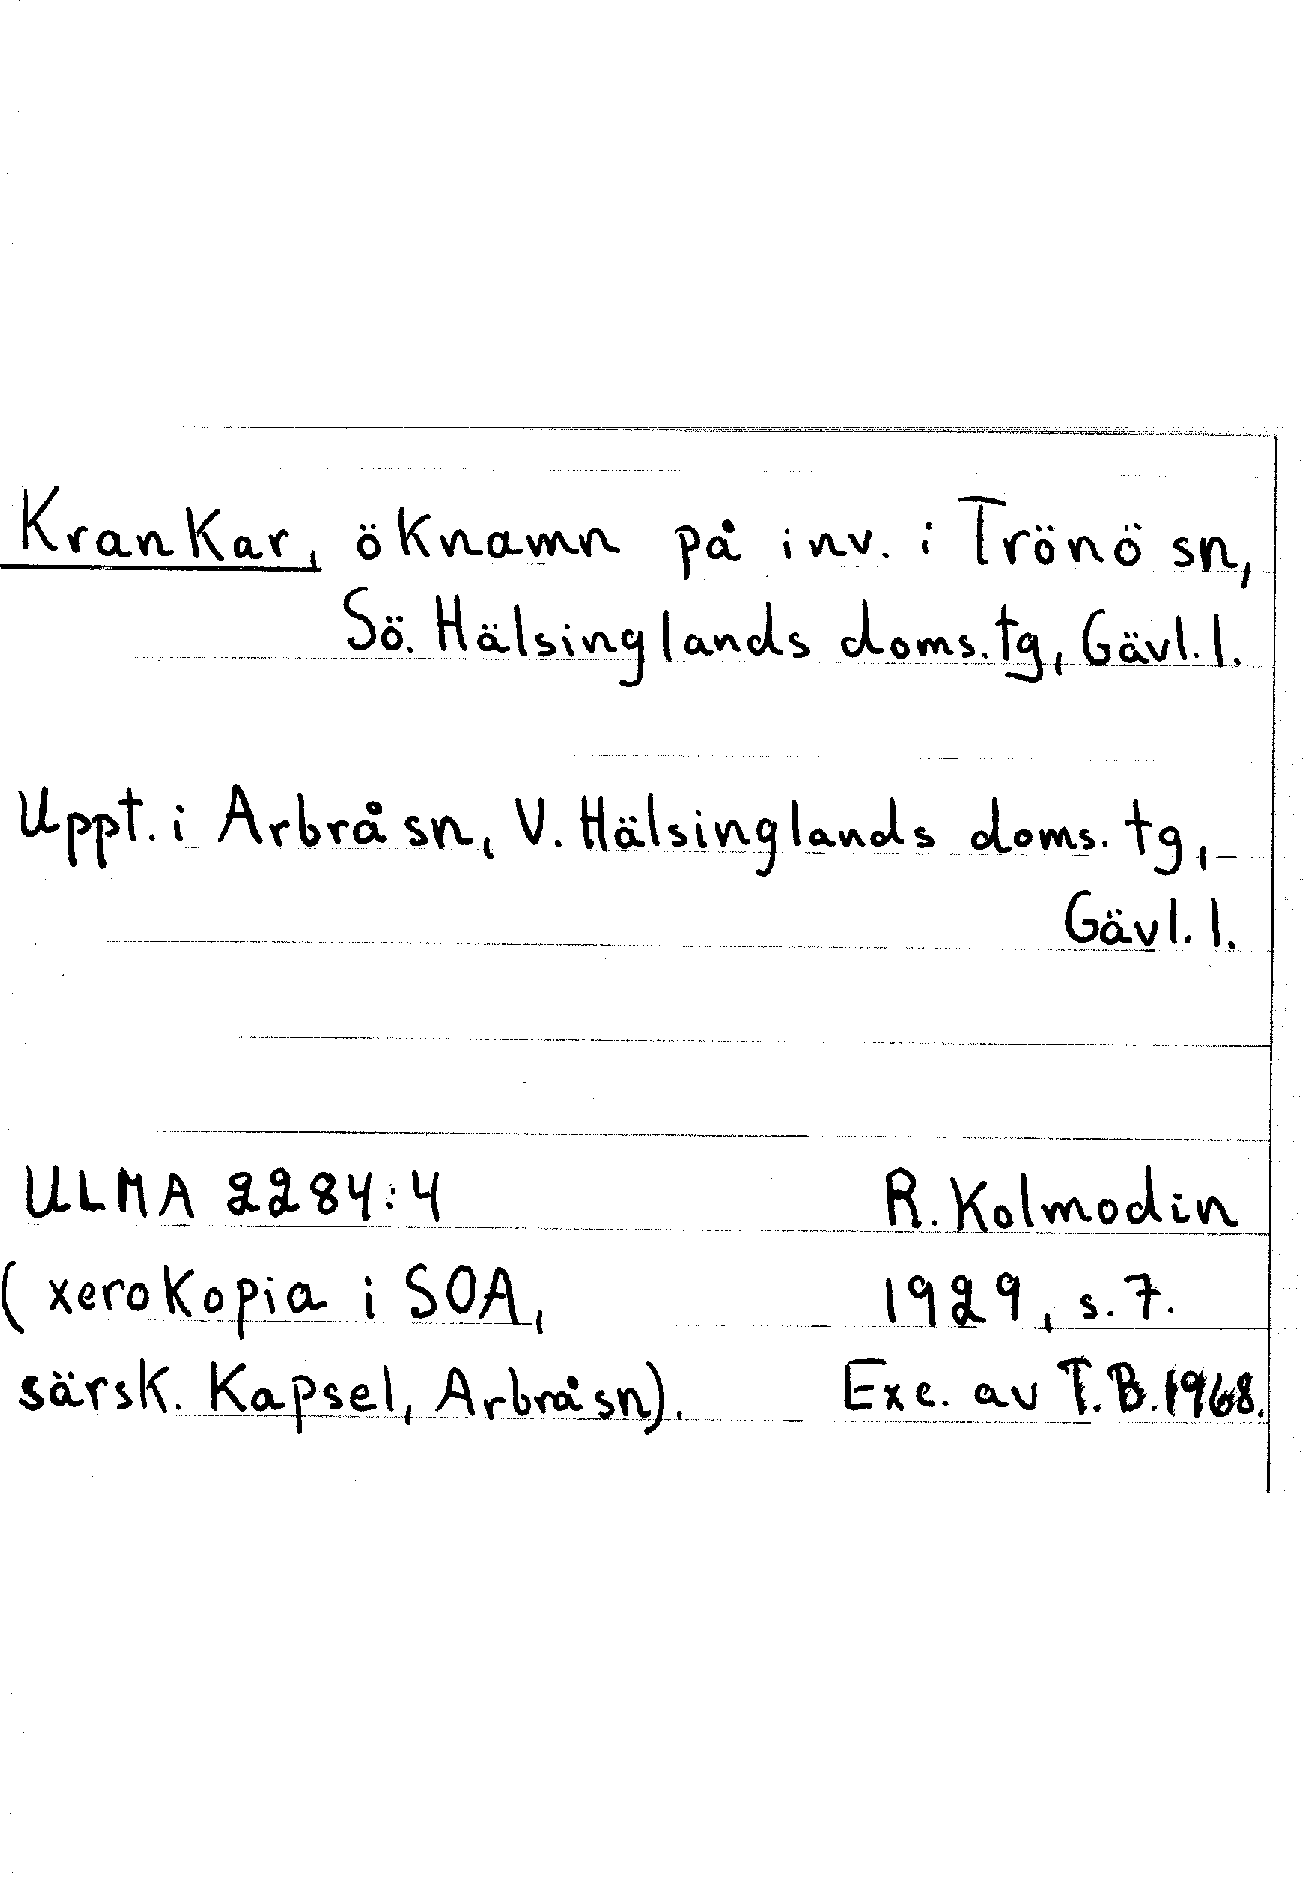 Krankar, öknamn på inv. i Trönö sn,
Sö. Hälsinglands doms.tg, Gävl. l.
Uppt. i Arbrå sn, V. Hälsinglands doms. tg,
Gävl. l.
ULMA 2284:4 R. Kolmodin
(xerokopia i SOA, 1929, s. 7.
särsk. Kapsel, Arbrå sn). Exc. av T.B. 1968.